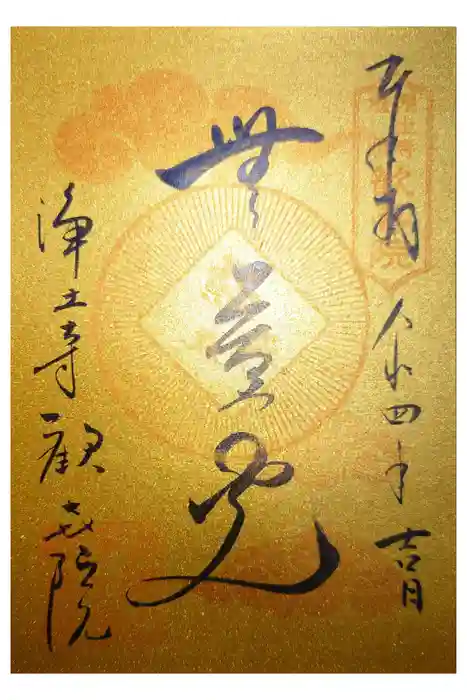 奉拝 令和四年 吉日
無量光
浄土寺 歓喜院